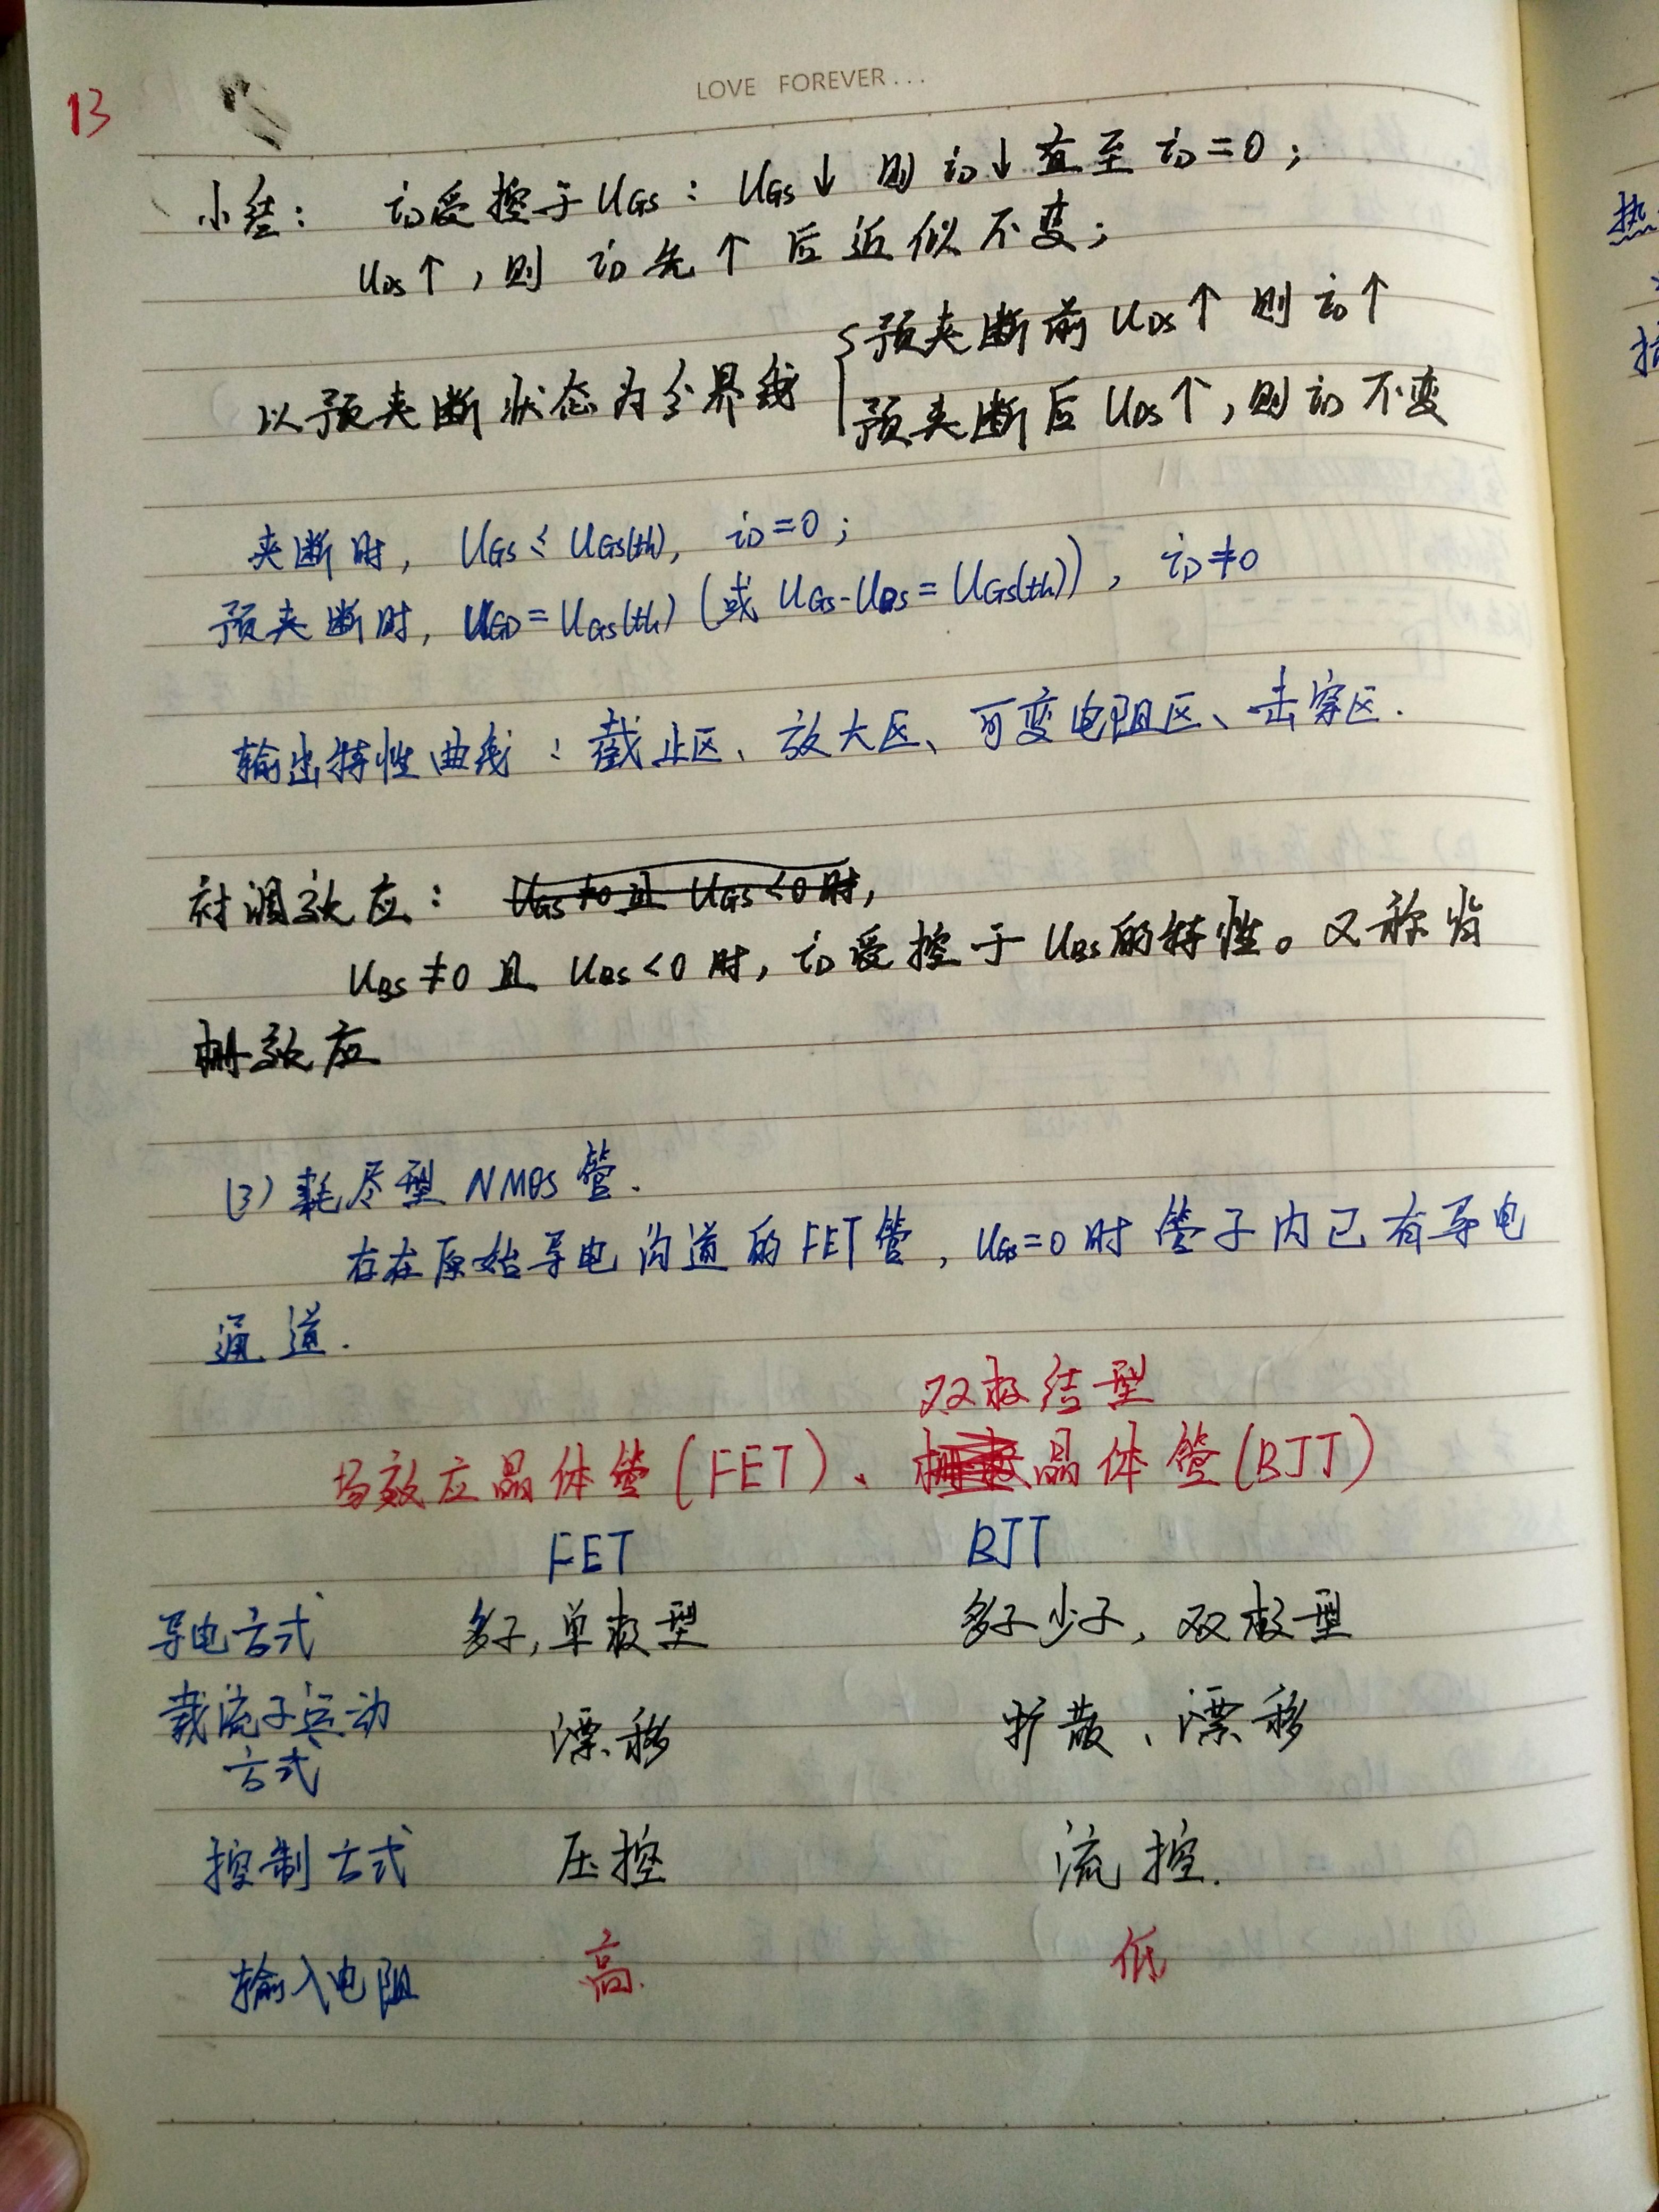 LOVE FOREVER...
13
小结： iD受控于UGS：UGS↓ 则 iD↓ 直至 iD=0；
UDS↑，则 iD先↑ 后近似不变；
以预夹断状态为分界线
预夹断前 UDS↑ 则 iD↑
预夹断后 UDS↑，则 iD 不变
夹断时，UGS≤UGS(th)，iD=0；
预夹断时，UGD=UGS(th)（或 UGS-UDS=UGS(th)），iD≠0
输出特性曲线：截止区、放大区、可变电阻区、击穿区.
衬调效应： UGS≠0且 UGS<0时，
UBS≠0 且 UBS<0 时，iD受控于 UBS的特性。又称背
栅效应
(3) 耗尽型 NMOS管.
存在原始导电沟道的FET管，UGS=0时 管子内已有导电
通道.
双极结型
场效应晶体管(FET)、晶体管(BJT)
FET BJT
导电方式 多子，单极型 多子少子，双极型
载流子运动
方式 漂移 扩散、漂移
控制方式 压控 流控.
输入电阻 高. 低
热